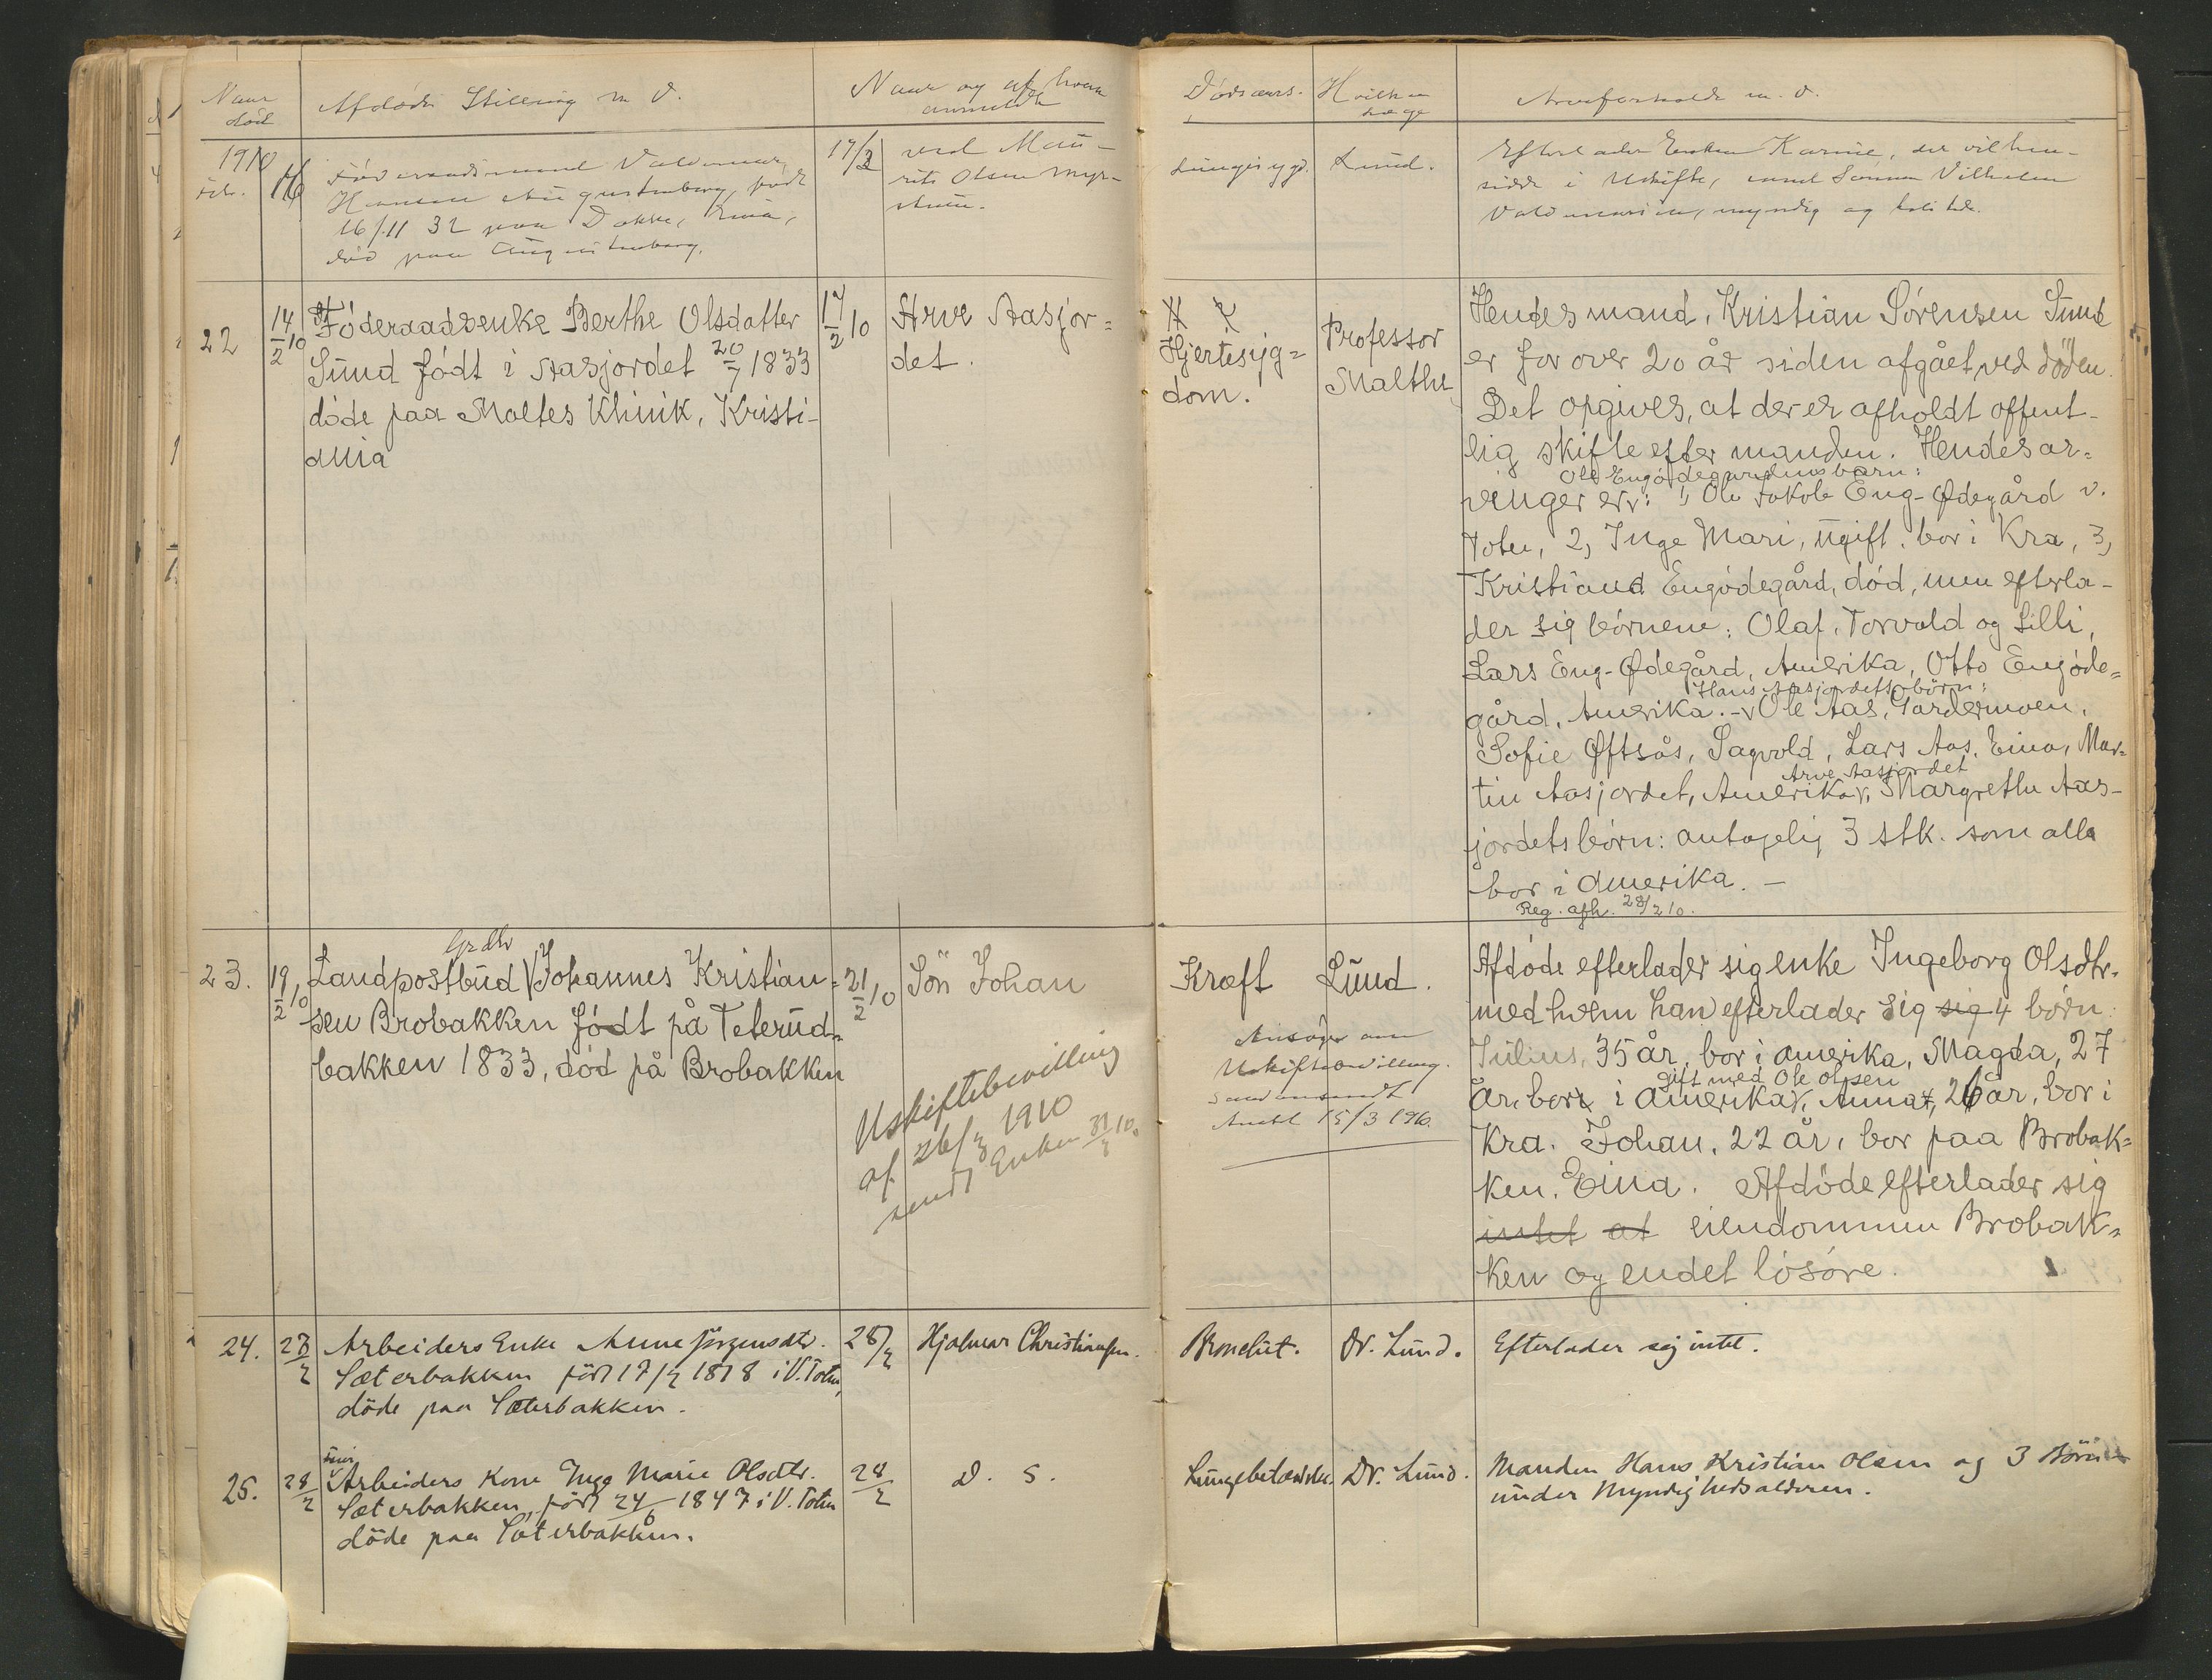 Naar død
Afdødes Stilling m. v.
Naar og af hvem anmeldt
Dødsaars.
Hvilken Læge
Arveforholde m. v.
1910
Febr.
16
Föderaadsmand Valdemar
Hansen Augustenborg, født
16/11 32 paa Dakke, Eina,
død paa Augustenborg.
17/2
ved Mau-
rits Olsen Myr-
Lungesygd.
Lund.
Efterlader Enken Karine, der vil hen-
sidde i Uskifte, samt Sønnen Vilhelm
Valdemarsen, myndig og
22
14/2 10
Föderaadsenke Berthe Olsdatter
Sund født i Aasjordet 20/7 1833
döde paa Maltes Klinik, Kristi-
ania
17/2 10
Arve Aasjor=
det.
Hjertesyg=
dom.
Professor
Malthe
Hendes mand, Kristian Sörensen Sund
er for over 20 år siden afgået ved döden.
Det opgives, at der er afholdt offent-
lig skifte efter manden. Hendes ar=
Ole Engödegaardens barn:
vinger er: 1, Ole Jakob Eng-Ødegård v.
Toten, 2, Inge Mari, ugift, bor i Kra, 3,
Kristiand Engödegård, död, men efterla-
der sig börnene: Olaf, Torvald og Lilli,
Lars Eng-Ødegård, Amerika, Otto Engöde=
Hans Aasjordets börn:
gård, Amerika. - Ole Aas, Gardermoen,
Sofie Øftsås, Sagvold, Lars Aas, Eina, Mar=
Arve Aasjordet
tin Aasjordet, Amerika, Margrethe Aas-
jordets börn: antagelig 3 stk. som alle
bor i Amerika. -
Reg. afh. 28/2 10.
23.
19/2 10
Grdbr
Landpostbud Johannes Kristian=
sen Brobakken født på Teterud=
bakken 1833, död på Brobakken
21/2 10
Sön Johan
Uskiftebevilling
af 26/3 1910
sendt Enken 31/3 10.
Kræft
Lund.
Ansøger om
Uskiftebevilling.
Amtet 15/3 1910.
Afdöde efterlader sig enke Ingeborg Olsdtr.
med hvem han efterlader sig sig 4 börn:
Julius, 35 år, bor i Amerika, Magda, 27
gift med Ole Olsen
år, bor i Amerika, Anna, 26 år, bor i
Kra. Johan, 22 år, bor paa Brobak=
ken, Eina. Afdöde efterlader sig
intet at eiendommen Brobak=
ken og endel lösöre.
24.
27/2
Arbeiders Enke Anne Jörgensdtr.
Sæterbakken född 17/2 1818 i V. Toten,
döde paa Sæterbakken.
28/2
Hjalmar Christiansen.
Bronchit.
Dr. Lund.
Efterlader sig intet.
25.
28/2
Arbeiders Kone Inga Marie Olsdtr.
Sæterbakken, född 24/6 1847 i V. Toten
döde paa Sæterbakken.
28/2
d. s.
Lungebetændelse.
Dr. Lund.
Manden Hans Kristian Olsen og 3 Börn
under Myndighedsalderen.